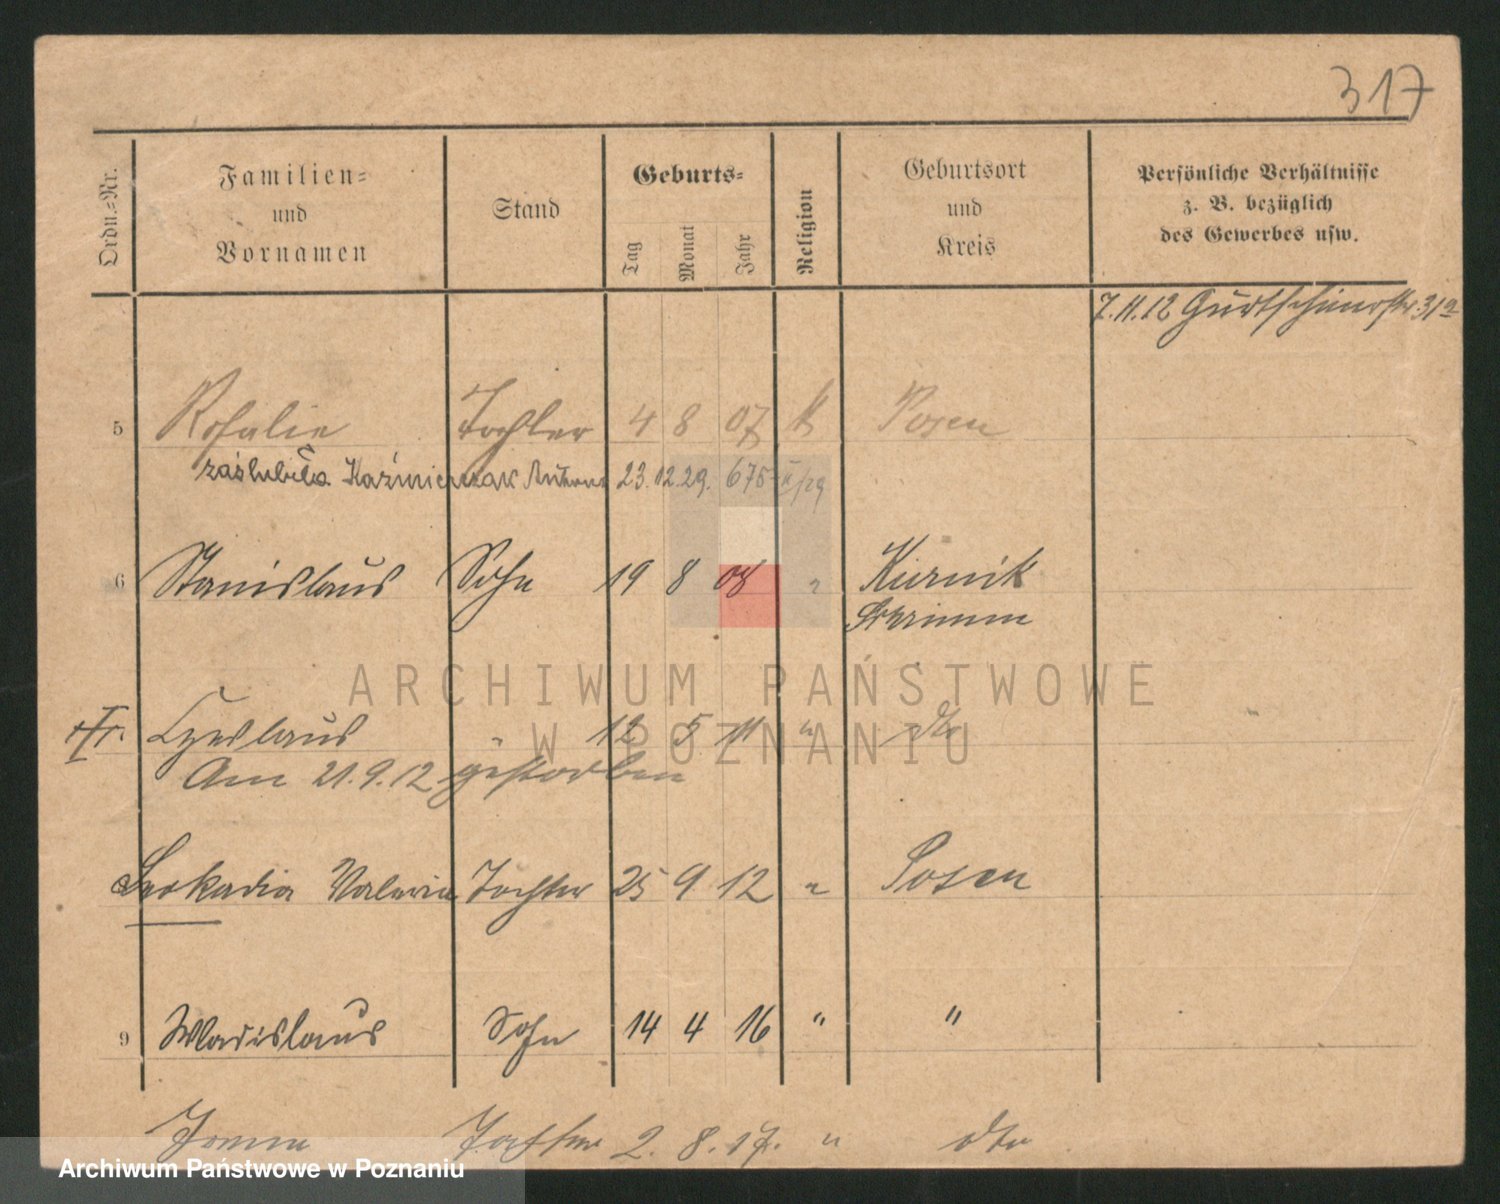 317
Ordn.-Nr.
Familien-
und
Vornamen
Stand
Geburts-
Tag
Monat
Jahr
Religion
Geburtsort
und
Kreis
Persönliche Verhältnisse
z. B. bezüglich
des Gewerbes usw.
7.11.12 Gurtschinerstr. 31a
5 Rosalie Tochter 4 8 07 k Posen
zaślubiła Kaźmierczak Antoni 23.12.29. 675 II/29
6 Stanislaus Sohn 19 8 08 " Kurnik
Schrimm
Czeslaus 12 5 11 " dto
Am 21.9.12 gestorben
Leokadia Valeria Tochter 25 9 12 " Posen
9 Wladislaus Sohn 14 4 16 " "
Tochter 2. 8. 17. " dto
ARCHIWUM PAŃSTWOWE
W POZNANIU
Archiwum Państwowe w Poznaniu